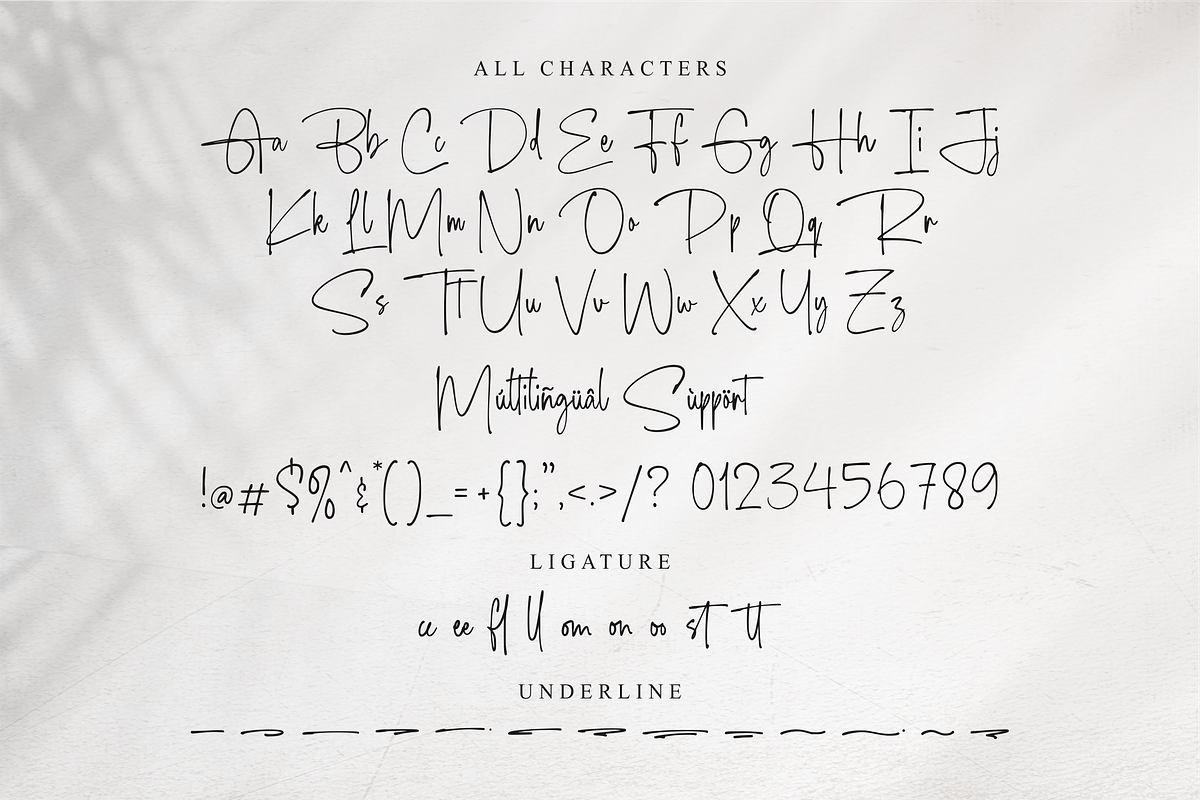 ALL CHARACTERS
Aa Bb Cc Dd Ee Ff Gg Hh Ii Jj
Kk Ll Mm Nn Oo Pp Qq Rr
Ss Tt Uu Vv Ww Xx Yy Zz
Múltiliñgüâl Sùppört
!@#$%^&*()_=+{};”,<.>/? 0123456789
LIGATURE
cc ee fl ll om on oo st tt
UNDERLINE